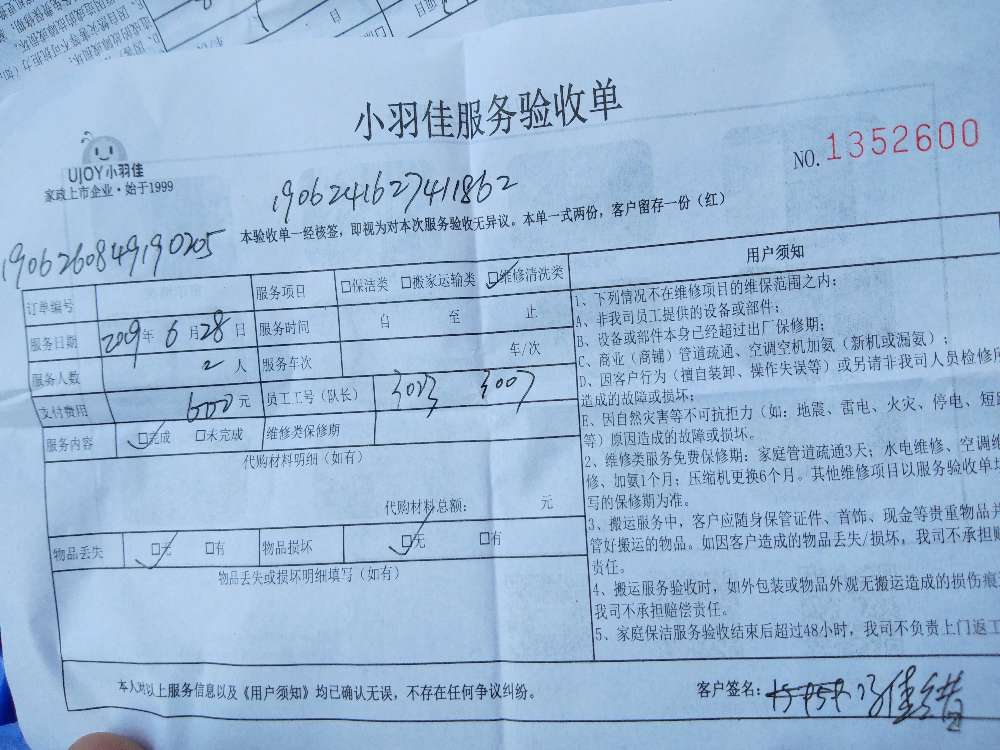 小羽佳服务验收单
UJOY小羽佳
家政上市企业·始于1999
NO.1352600
190624162741862
本验收单一经核签，即视为对本次服务验收无异议。本单一式两份，客户留存一份（红）
1906260849190205
订单编号 服务项目 □保洁类 □搬家运输类 ☑维修清洗类
服务日期 2019年6月28日 服务时间 自 至 止
服务人数 2人 服务车次 车/次
支付费用 600元 员工工号（队长） 3023 3007
服务内容 ☑完成 □未完成 维修类保修期
代购材料明细（如有）
代购材料总额： 元
物品丢失 ☑无 □有 物品损坏 ☑无 □有
物品丢失或损坏明细填写（如有）
用户须知
1、下列情况不在维修项目的维保范围之内：
A、非我司员工提供的设备或部件；
B、设备或部件本身已经超过出厂保修期；
C、商业（商铺）管道疏通、空调空机加氨（新机或漏氨）；
D、因客户行为（擅自装卸、操作失误等）或另请非我司人员检修所
造成的故障或损坏；
E、因自然灾害等不可抗拒力（如：地震、雷电、火灾、停电、短路
等）原因造成的故障或损坏。
2、维修类服务免费保修期：家庭管道疏通3天；水电维修、空调维
修、加氨1个月；压缩机更换6个月。其他维修项目以服务验收单填
写的保修期为准。
3、搬运服务中，客户应随身保管证件、首饰、现金等贵重物品并
管好搬运的物品。如因客户造成的物品丢失/损坏，我司不承担赔
责任。
4、搬运服务验收时，如外包装或物品外观无搬运造成的损伤痕
我司不承担赔偿责任。
5、家庭保洁服务验收结束后超过48小时，我司不负责上门返工
本人对以上服务信息以及《用户须知》均已确认无误，不存在任何争议纠纷。
客户签名：